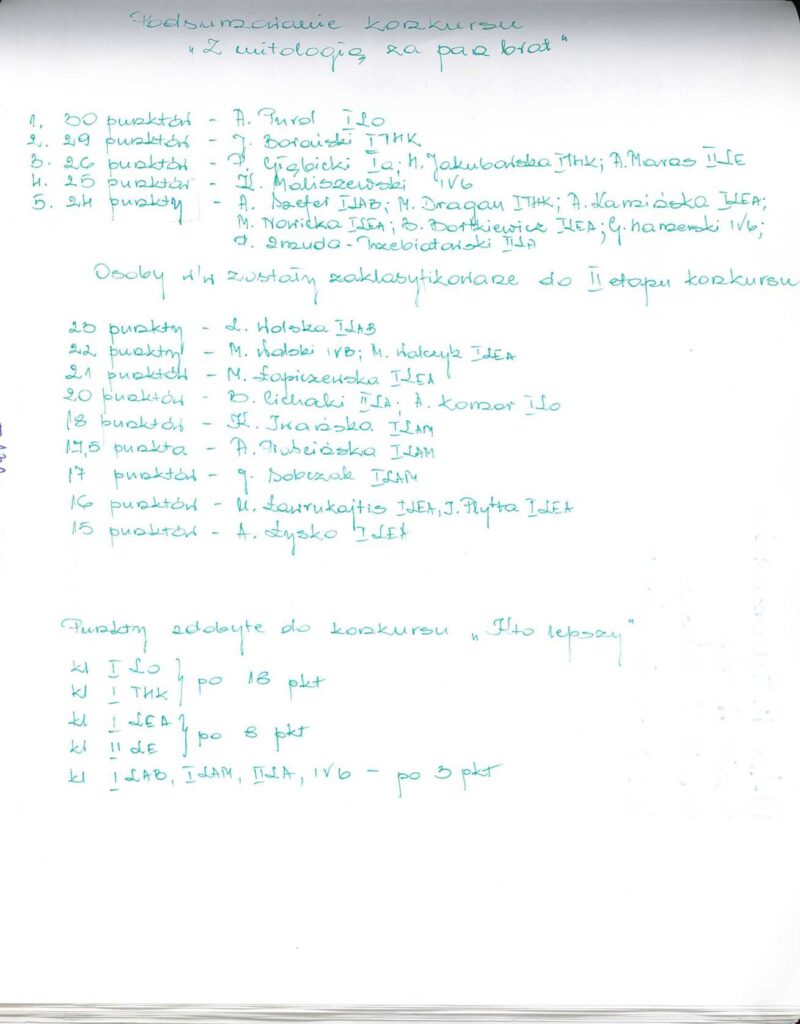 Podsumowanie konkursu
"Z mitologią za pan brat"
1. 30 punktów - A. Purol I LO
2. 29 punktów - J. Boraiski I THK
3. 26 punktów - P. Głąbicki Ia; H. Jakubowska I THK; A. Maras II LE
4. 25 punktów - K. Maliszewski IVb
5. 24 punkty - A. Szefer I LAB; M. Dragan I THK; A. Kamińska I LEA;
M. Nowicka I LEA; B. Bortkiewicz I LEA; G. IVb;
Zmuda-Trzebiatowski II LA
Osoby w/w zostały zaklasyfikowane do II etapu konkursu
23 punkty - L. Wolska I LAB
22 punkty - M. Wolski IVB; M. Walczyk I LEA
21 punktów - M. Łapiczewska I LEA
20 punktów - B. Cichacki II LA; A. Komor I LO
18 punktów - K. Iwańska I LAM
17,5 punkta - A. I LAM
17 punktów - J. Sobczak I LAM
16 punktów - M. Ławrukajtis I LEA, J. Plytta I LEA
15 punktów - A. Łysko I LEA
Punkty zdobyte do konkursu "Kto lepszy"
kl I LO
kl I THK } po 18 pkt
kl I LEA
kl II LE } po 8 pkt
kl I LAB, I LAM, II LA, IVb - po 3 pkt